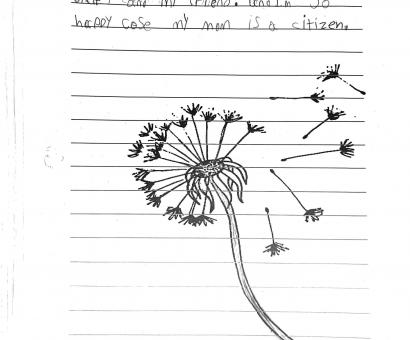 and my friend. and I'm so
happy case my mom is a citizen.